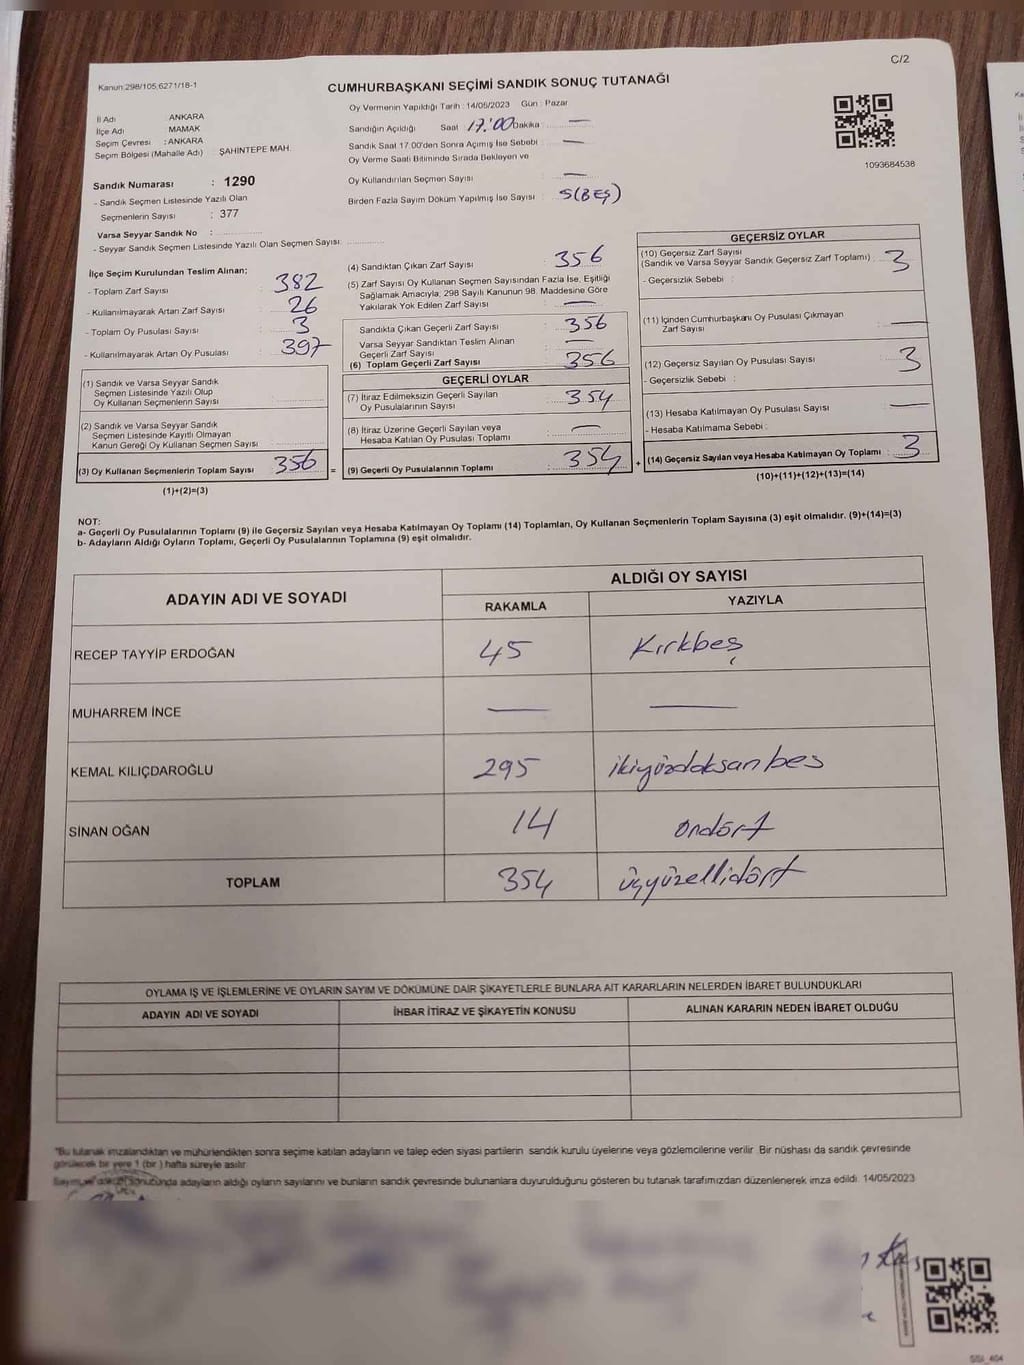 C/2
Kanun:298/105,6271/18-1
CUMHURBAŞKANI SEÇİMİ SANDIK SONUÇ TUTANAĞI
İl Adı ANKARA
İlçe Adı MAMAK
Seçim Çevresi : ANKARA
Seçim Bölgesi (Mahalle Adı) ŞAHİNTEPE MAH.
Sandık Numarası : 1290
- Sandık Seçmen Listesinde Yazılı Olan
Seçmenlerin Sayısı : 377
Varsa Seyyar Sandık No :
- Seyyar Sandık Seçmen Listesinde Yazılı Olan Seçmen Sayısı:
Oy Vermenin Yapıldığı Tarih : 14/05/2023 Gün : Pazar
Sandığın Açıldığı Saat 17:00 Dakika : —
Sandık Saat 17.00'den Sonra Açımış İse Sebebi : —
Oy Verme Saati Bitiminde Sırada Bekleyen ve
Oy Kullandırılan Seçmen Sayısı —
Birden Fazla Sayım Döküm Yapılmış İse Sayısı : 5(BEŞ)
1093684538
İlçe Seçim Kurulundan Teslim Alınan;
- Toplam Zarf Sayısı : 382
- Kullanılmayarak Artan Zarf Sayısı : 26
- Toplam Oy Pusulası Sayısı : 3
- Kullanılmayarak Artan Oy Pusulası : 397
(1) Sandık ve Varsa Seyyar Sandık
Seçmen Listesinde Yazılı Olup
Oy Kullanan Seçmenlerin Sayısı
(2) Sandık ve Varsa Seyyar Sandık
Seçmen Listesinde Kayıtlı Olmayan
Kanun Gereği Oy Kullanan Seçmen Sayısı
(3) Oy Kullanan Seçmenlerin Toplam Sayısı 356 =
(1)+(2)=(3)
(4) Sandıktan Çıkan Zarf Sayısı : 356
(5) Zarf Sayısı Oy Kullanan Seçmen Sayısından Fazla İse, Eşitliği
Sağlamak Amacıyla, 298 Sayılı Kanunun 98. Maddesine Göre
Yakılarak Yok Edilen Zarf Sayısı : —
Sandıkta Çıkan Geçerli Zarf Sayısı : 356
Varsa Seyyar Sandıktan Teslim Alınan
Geçerli Zarf Sayısı : —
(6) Toplam Geçerli Zarf Sayısı : 356
GEÇERLİ OYLAR
(7) İtiraz Edilmeksizin Geçerli Sayılan
Oy Pusulalarının Sayısı : 354
(8) İtiraz Üzerine Geçerli Sayılan veya
Hesaba Katılan Oy Pusulası Toplamı : —
(9) Geçerli Oy Pusulalarının Toplamı : 354 +
GEÇERSİZ OYLAR
(10) Geçersiz Zarf Sayısı
(Sandık ve Varsa Seyyar Sandık Geçersiz Zarf Toplamı) : 3
- Geçersizlik Sebebi :
(11) İçinden Cumhurbaşkanı Oy Pusulası Çıkmayan
Zarf Sayısı : —
(12) Geçersiz Sayılan Oy Pusulası Sayısı : 3
- Geçersizlik Sebebi :
(13) Hesaba Katılmayan Oy Pusulası Sayısı : —
- Hesaba Katılmama Sebebi :
(14) Geçersiz Sayılan veya Hesaba Katılmayan Oy Toplamı : 3
(10)+(11)+(12)+(13)=(14)
NOT:
a- Geçerli Oy Pusulalarının Toplamı (9) ile Geçersiz Sayılan veya Hesaba Katılmayan Oy Toplamı (14) Toplamları, Oy Kullanan Seçmenlerin Toplam Sayısına (3) eşit olmalıdır. (9)+(14)=(3)
b- Adayların Aldığı Oyların Toplamı, Geçerli Oy Pusulalarının Toplamına (9) eşit olmalıdır.
ADAYIN ADI VE SOYADI
ALDIĞI OY SAYISI
RAKAMLA YAZIYLA
RECEP TAYYİP ERDOĞAN 45 Kırkbeş
MUHARREM İNCE — —
KEMAL KILIÇDAROĞLU 295 ikiyüzdoksanbes
SİNAN OĞAN 14 Ondört
TOPLAM 354 üçyüzellidört
OYLAMA İŞ VE İŞLEMLERİNE VE OYLARIN SAYIM VE DÖKÜMÜNE DAİR ŞİKAYETLERLE BUNLARA AİT KARARLARIN NELERDEN İBARET BULUNDUKLARI
ADAYIN ADI VE SOYADI İHBAR İTİRAZ VE ŞİKAYETİN KONUSU ALINAN KARARIN NEDEN İBARET OLDUĞU
*Bu tutanak imzalandıktan ve mühürlendikten sonra seçime katılan adayların ve talep eden siyasi partilerin sandık kurulu üyelerine veya gözlemcilerine verilir. Bir nüshası da sandık çevresinde
görülecek bir yere 1 (bir ) hafta süreyle asılır.
adayların aldığı oyların sayılarını ve bunların sandık çevresinde bulunanlara duyurulduğunu gösteren bu tutanak tarafımızdan düzenlenerek imza edildi. 14/05/2023